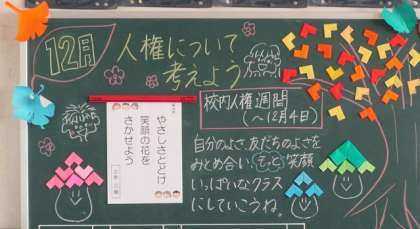 12月
人権について
考えよう
校内人権週間
(〜12月4日)
やさしさとどけ
笑顔の花を
さかせよう
自分のよさ、友だちのよさを
みとめ合い、そっと笑顔
いっぱいなクラス
にしていこうね。